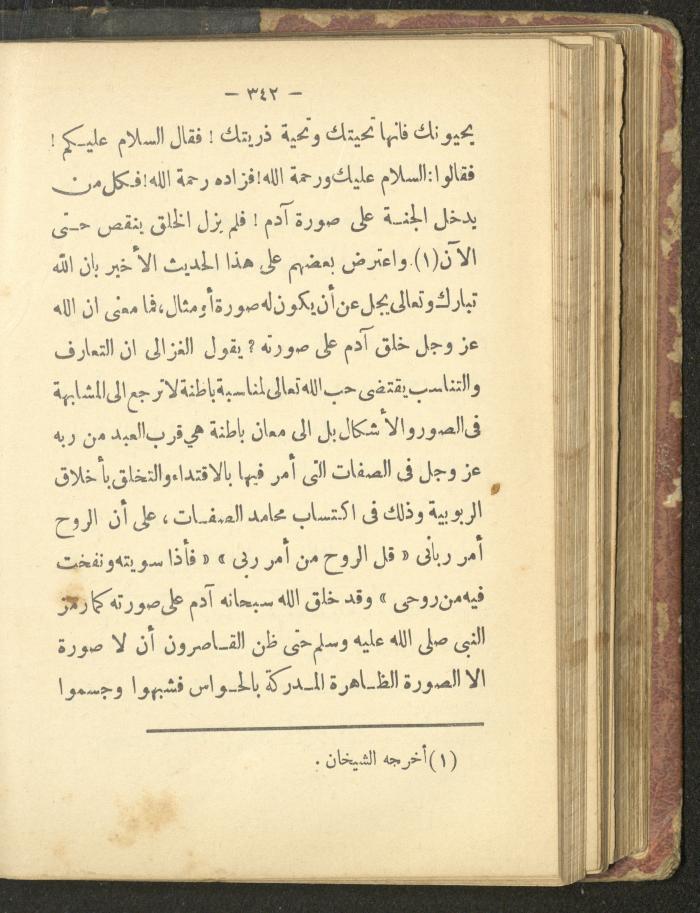 — ٣٤٢ —
يحيونك فانها تحيتك وتحية ذريتك ! فقال السلام عليكم !
فقالوا : السلام عليك ورحمة الله ! فزاده رحمة الله ! فكل من
يدخل الجنة على صورة آدم ! فلم يزل الخلق ينقص حتى
الآن (١) . واعترض بعضهم على هذا الحديث الأخير بان الله
تبارك وتعالى يجل عن أن يكون له صورة أو مثال ، فما معنى ان الله
عز وجل خلق آدم على صورته ؟ يقول الغزالى ان التعارف
والتناسب يقتضى حب الله تعالى لمناسبة باطنة لا ترجع الى المشابهة
فى الصور والأشكال بل الى معان باطنة هي قرب العبد من ربه
عز وجل فى الصفات التى أمر فيها بالاقتداء والتخلق بأخلاق
الربوبية وذلك فى اكتساب محامد الصفات ، على أن الروح
أمر ربانى « قل الروح من أمر ربى » « فأذا سويته ونفخت
فيه من روحى » وقد خلق الله سبحانه آدم على صورته كما رمز
النبى صلى الله عليه وسلم حتى ظن القاصرون أن لا صورة
الا الصورة الظاهرة المدركة بالحواس فشبهوا وجسموا
(١) أخرجه الشيخان .